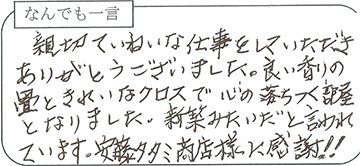 なんでも一言
親切ていねいな仕事をしていただき
ありがとうございました。良い香りの
畳ときれいなクロスで心の落ちつく部屋
となりました。新築みたいだと言われ
ています。安藤タタミ商店様に感謝!!